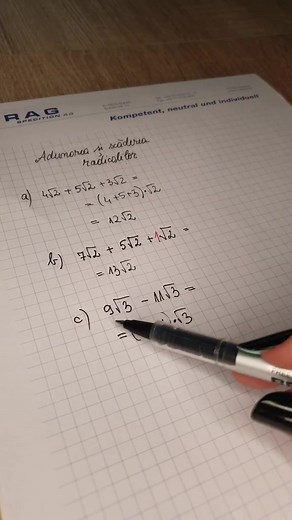 RAG
SPEDITION AG
Kompetent, neutral und individuell
Adunarea și scăderea
radicalilor
a) 4√2 + 5√2 + 3√2 =
= (4+5+3)·√2
= 12√2
b) 7√2 + 5√2 + 1√2 =
= 13√2
c) 9√3 - 11√3 =
= ( )·√3